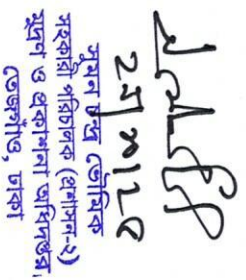 সুমন চন্দ্র ভৌমিক
সহকারী পরিচালক (প্রশাসন-২)
মুদ্রণ ও প্রকাশনা অধিদপ্তর,
তেজগাঁও, ঢাকা